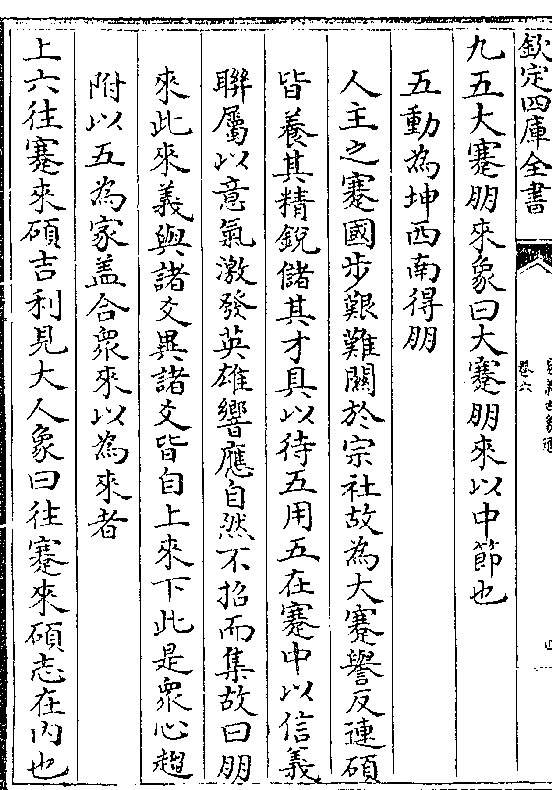 欽定四庫全書
卷六
九五大蹇朋來象曰大蹇朋來以中節也
五動為坤西南得朋
人主之蹇國步艱難關於宗社故為大蹇譽反連碩
皆養其精銳儲其才具以待五用五在蹇中以信義
聯屬以意氣激發英雄響應自然不招而集故曰朋
來此來義與諸爻異諸爻皆自上來下此是衆心趨
附以五為家盖合衆來以為來者
上六往蹇來碩吉利見大人象曰往蹇來碩志在内也